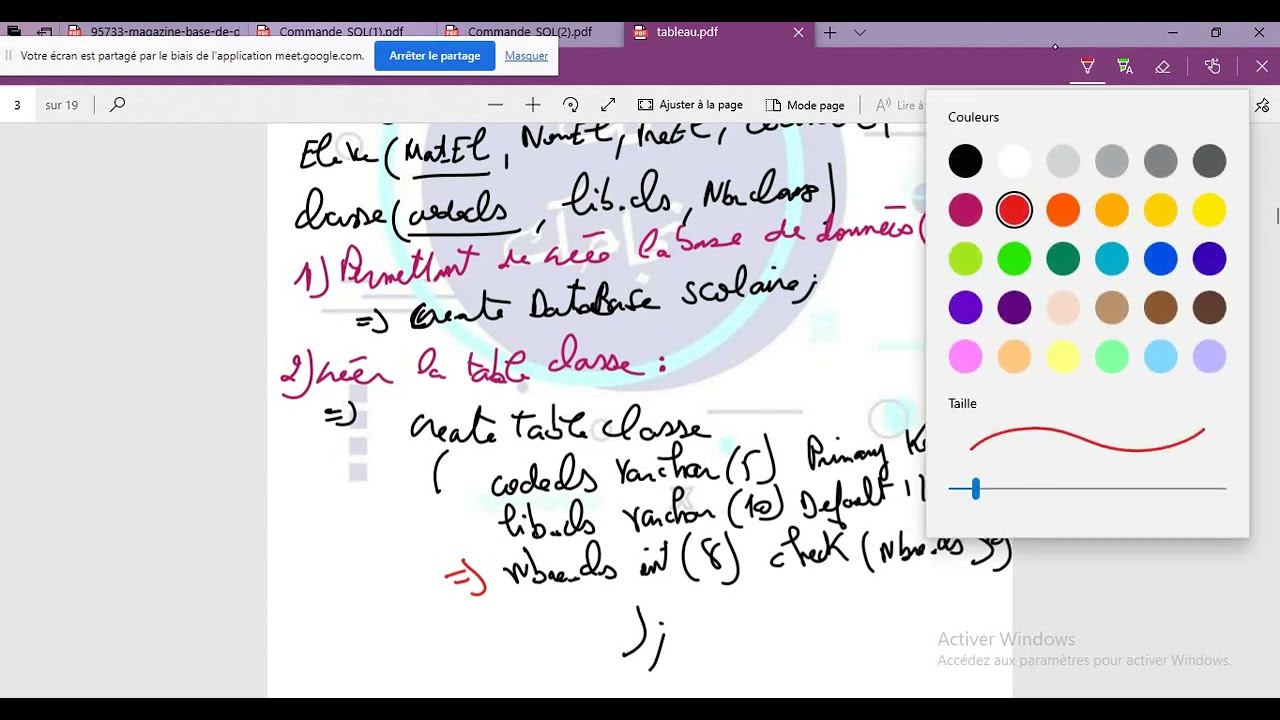 95733-magazine-base-de-d
Commande_SQL(1).pdf
Commande_SQL(2).pdf
tableau.pdf
Votre écran est partagé par le biais de l'application meet.google.com.
Arrêter le partage
Masquer
3 sur 19
Ajuster à la page
Mode page
Lire à
Couleurs
Taille
Eleve(MatEl, NomEl, PreEl,
classe(codecls, lib.cls, Nbr class)
1) Permettant de créé la base de données(
=> Create DataBase scolaire;
2) créér la table classe :
=> create table classe
( codecls varchar(5) Primary K
lib.cls varchar(10) Default
=> nbre.cls int(8) check (Nbre.cls
);
Activer Windows
Accédez aux paramètres pour activer Windows.